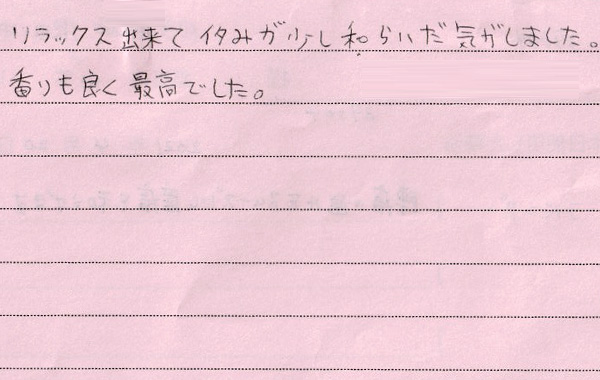 リラックス出来てイタみが少し和らいだ気がしました。
香りも良く最高でした。